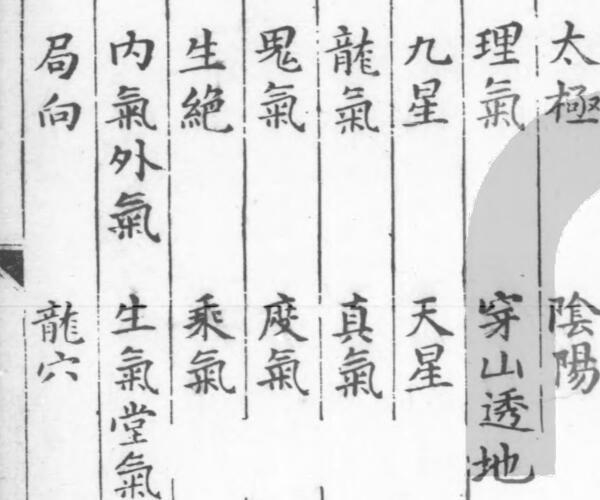 太極 陰陽
理氣 穿山透地
九星 天星
龍氣 真氣
鬼氣 度氣
生絕 乘氣
內氣外氣 生氣堂氣
局向 龍穴